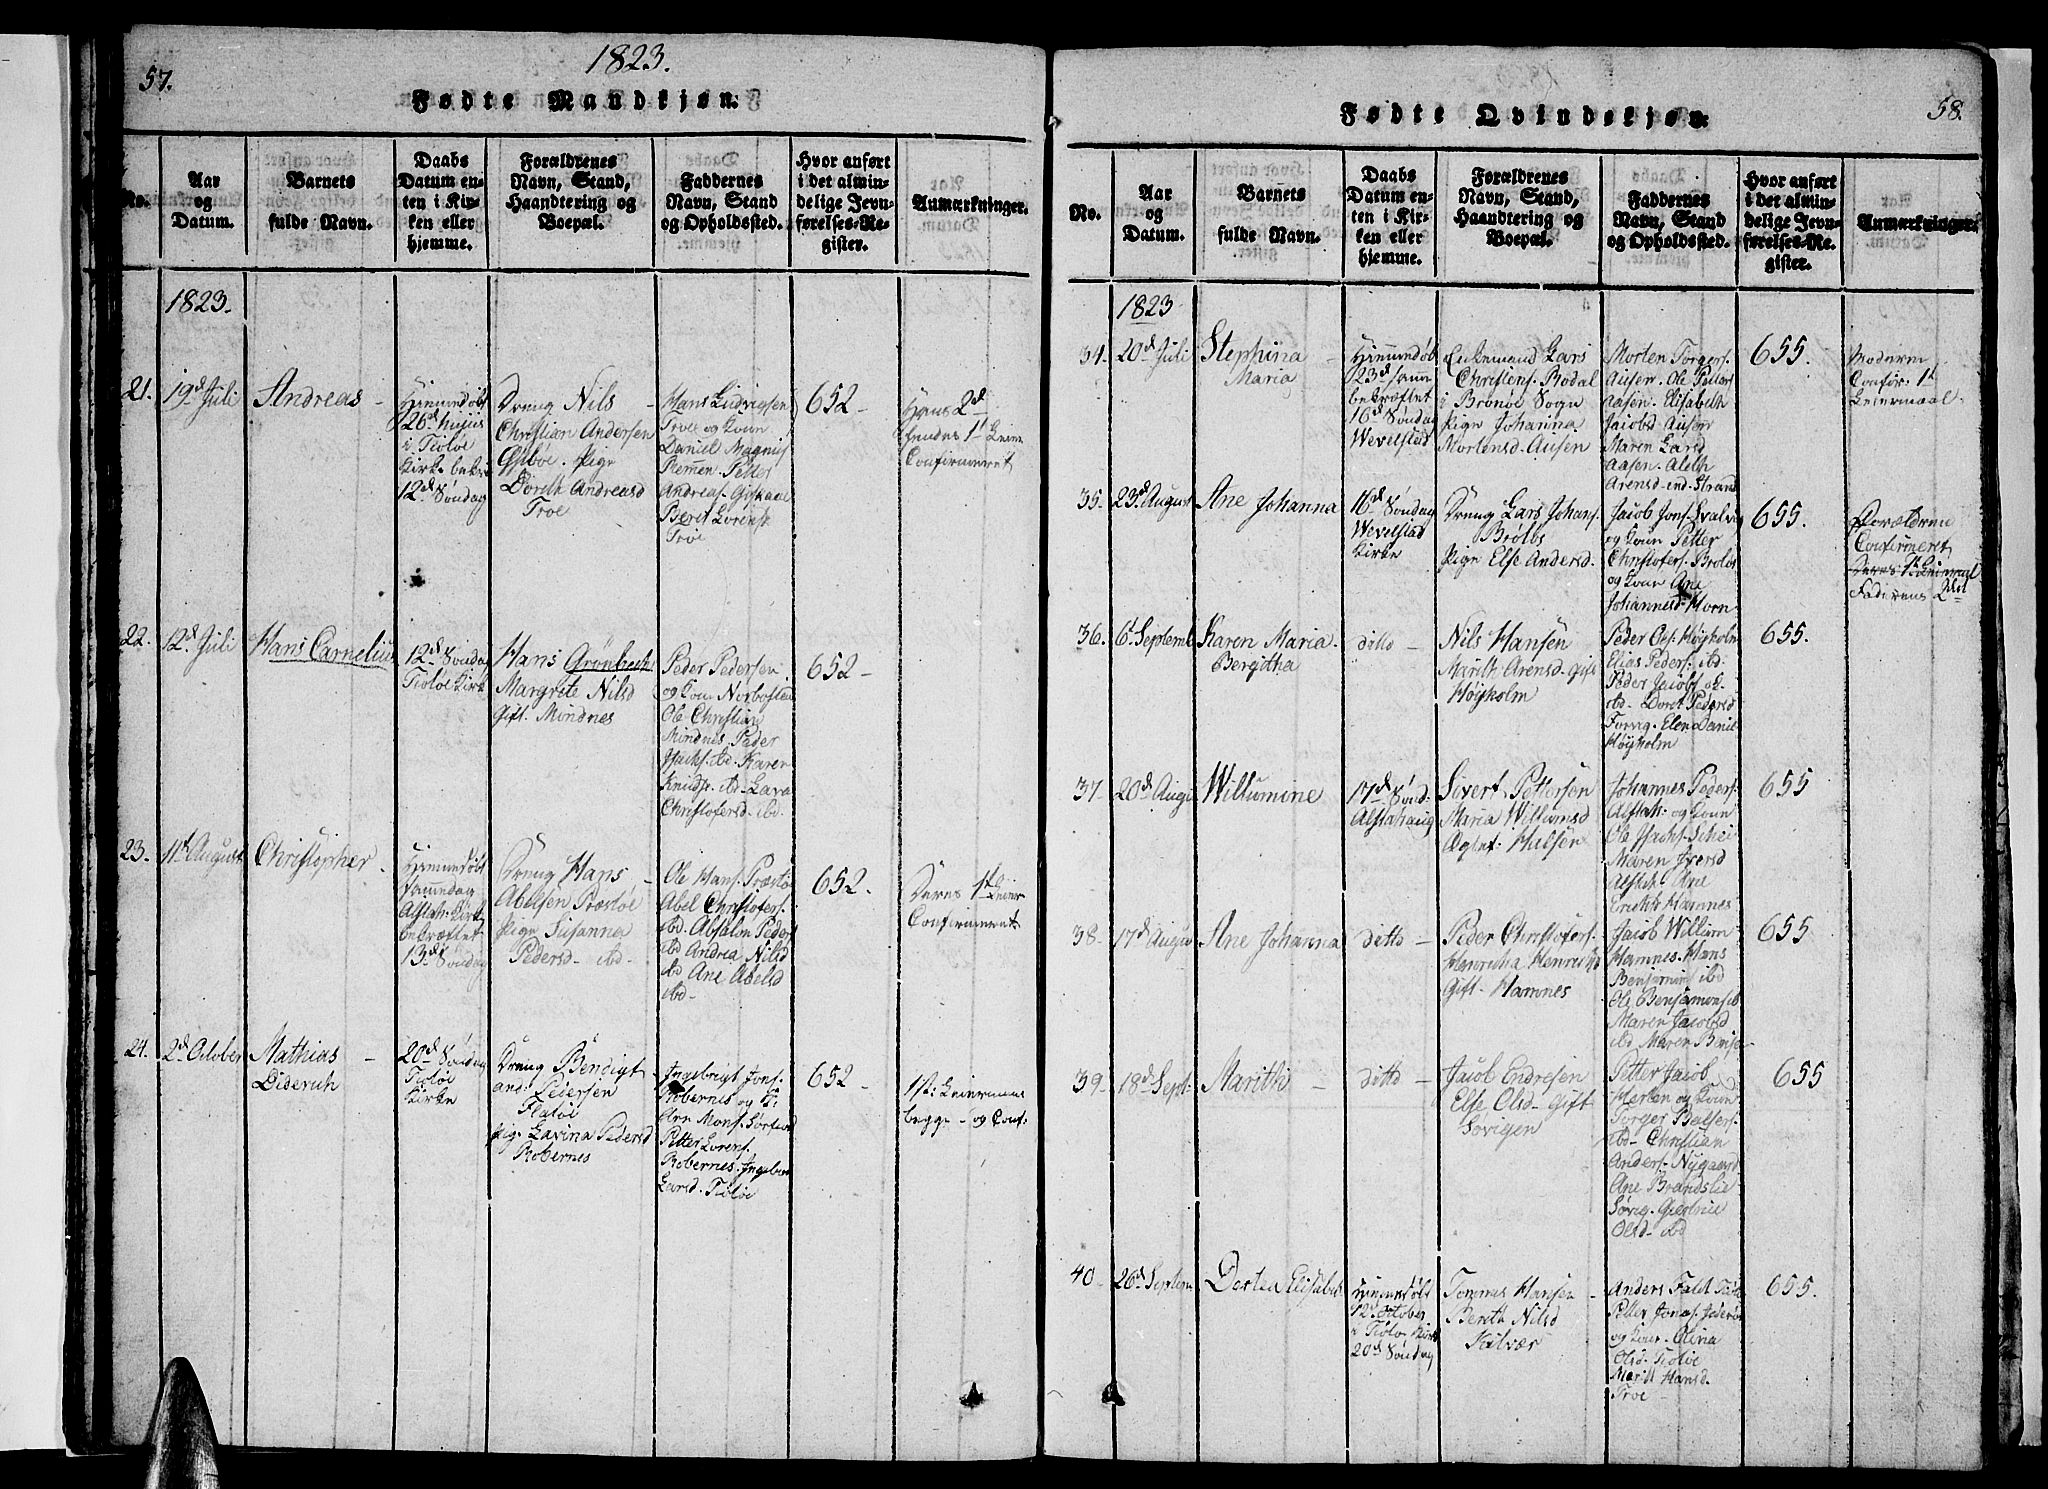 57.
1823.
Fødte Mandkjøn.
No.
Aar
og
Datum.
Barnets
fulde Navn.
Daabs
Datum en-
ten i Kir-
ken eller
hjemme.
Forældrenes
Navn, Stand,
Haandtering og
Boepæl.
Faddernes
Navn, Stand
og Opholdssted.
Hvor anført
i det almin-
delige Jevn-
førelses-Re-
gister.
Anmærkninger.
1823.
21.
19d Juli
Andreas -
Hiemmedøbt
26d hujus
i Tiøtøe
Kirke bekr.
12d Søndag
Dreng Nils
Christian Andersen
Pige
Doreth Andreasd
Troe
Hans Ludvigsen
Troe og Kone
Daniel Magnus
Remen. Petter
Andreas.
Beret Lorens
Troe
652 -
Hans 2d
hendes 1t Leierm
Confirmeret
22.
12d Juli
Hans Cornelius
12d Søndag
Tiøtøe Kirke
Hans Grønbech
Margrete Nilsd
Gift. Mindnes
Peder Pedersen
og Kone
Ole Christian
Mindnes Peder
Isachs. ibd. Karen
Knudsd. ibd. Lava
Christofersd. ibd.
652 -
23.
11t August
Christopher -
Hiemmedøbt
samme dag
Alstah. Kirke
bekræftet
13d Søndag
Dreng Hans -
Abelsen Præstøe
Pige Susanna
Pedersd. ibd -
Ole Hans. Præstø
Abel Christofers.
ibd. Absalm Peders
ibd Andrea Nilsd
ibd Ane Abelsd
ibd -
652 -
Deres 1st Leier
Confirmeret
24.
2d October
Mathias -
Diderich
20d Søndag
Tiøtøe
Kirke
Dreng Bendigt
Pedersen
Flatøe
Pige Lavina Pedersd
Robernes
Ingebrigt Jons.
Robernes og K.
Arn Mons.
Petter Lorens.
Robernes. Ingebor
Larsd. Tiøtøe
652 -
1st: Leiermaal
begge - og Conf:
58.
Fødte Qvindekjøn.
No.
Aar
og
Datum.
Barnets
fulde Navn.
Daabs
Datum en-
ten i Kir-
ken eller
hjemme.
Forældrenes
Navn, Stand,
Haandtering og
Boepæl.
Faddernes
Navn, Stand
og Opholdssted.
Hvor anført
i det almin-
delige Jevn-
førelses-Re-
gister.
Anmærkninger.
1823
34.
20d Juli
Stephina -
Maria
Hiemmedøb
23d samme
bekræftet
16d Søndag
Wevelstad
Enkemand Lars
Christens. Bodal
i Brønøe Sogn
Pige Johanna
Mortensd. Ausen
Morten Torgers.
Ausen. Ole Petters
Aasen. Elisabeth
Jacobsd. Ausen
Maren Larsd
Aasen. Aleth
Arensd. ind. Strand
655.
Moderen
Confir. 1t
Leiermaal.
35.
23. August
Ane Johanna
16d Søndag
Wevelstad
Kirke
Dreng Lars Johans.
Brøløs
Pige Else Andersd.
Jacob Jons. Svalvig
og Kone Petter
Christofers. Brøløs
og Kone Ane
Johannesd. Horn
655.
Forældrene
Confirmeret
Deres 1t Leiermaal
Faderens 2det
36.
6t Septemb
Karen Maria
Bergitha
ditto -
Nils Hansen
Marith Arensd. Gift
Høyholm
Peder Ols. Høyholm
Elias Peders. ibd.
Peder Jacobs ok
ibd - Doret Pedersd
Forvig. Elen Daniel
Høyholm
655.
37.
20d Augu
Willumine
17d Sønd.
Alstahaug
Sivert Pettersen
Maria Willumsd
Ægtef. Halsen
Johannes Peders.
Alstah. og Kone
Ole Isachs. Schei
Maren Iversd
Alstah. Ane
Erichsd. Hamnes
655
38.
17d Augu
Ane Johanna
ditto -
Peder Christofers.
Henricha Henricksd
Gift - Hamnes
Jacob Willum
Hamnes. Hans
Benjamin ibd
Ole Benjamins ib
Maren Jacobsd
ibd Maren Benja
655
39.
18d Sept.
Marith -
ditto -
Jacob Endresen
Else Olsd - Gift
Søvigen
Petter Jacob
Herten og Kone
Torger Baltser.
ibd - Christian
Anders. Nygaard
Ane
Søvig.
Olsd - ibd
655
40 -
26d Septem
Dortea Elisabet
Hiemmedøbt
12 October
i Tiøtø. Kirk
20d Søndag
Tommes Hansen -
Berith Nilsd
Kalvær
Anders Falch Tiøtø
Petter Jonas.
og Kone. Olina
Olsd. Tiøtøe
Marit Hansd.
Troe -
655.